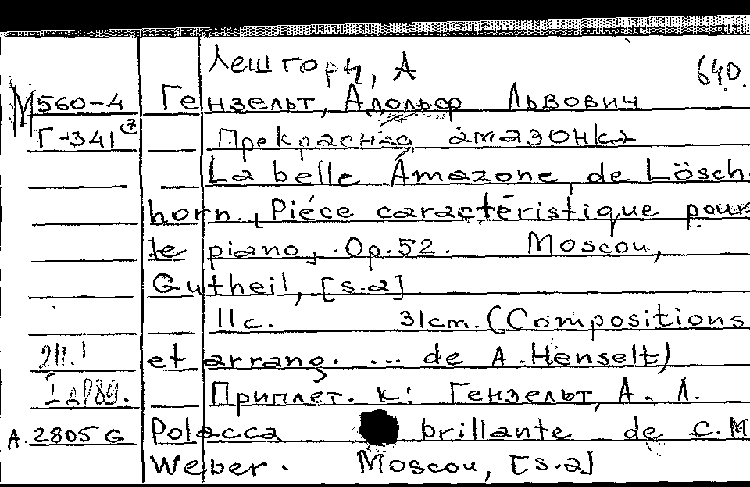 Лешгорн, А 640.
М560-4 Гензельт, Адольф Львович
Г-341 Прекрасная амазонка
La belle Amazone, de Lösch-
horn, Piéce caractéristique pour
le piano, Op.52. Moscou,
Gutheil, [s.a]
11с. 31cm. (Compositions
et arrang. ... de A. Henselt)
Приплет. к: Гензельт, А. Л.
A.2805 G Polacca brillante de C.M
Weber. Moscou, [s.a]